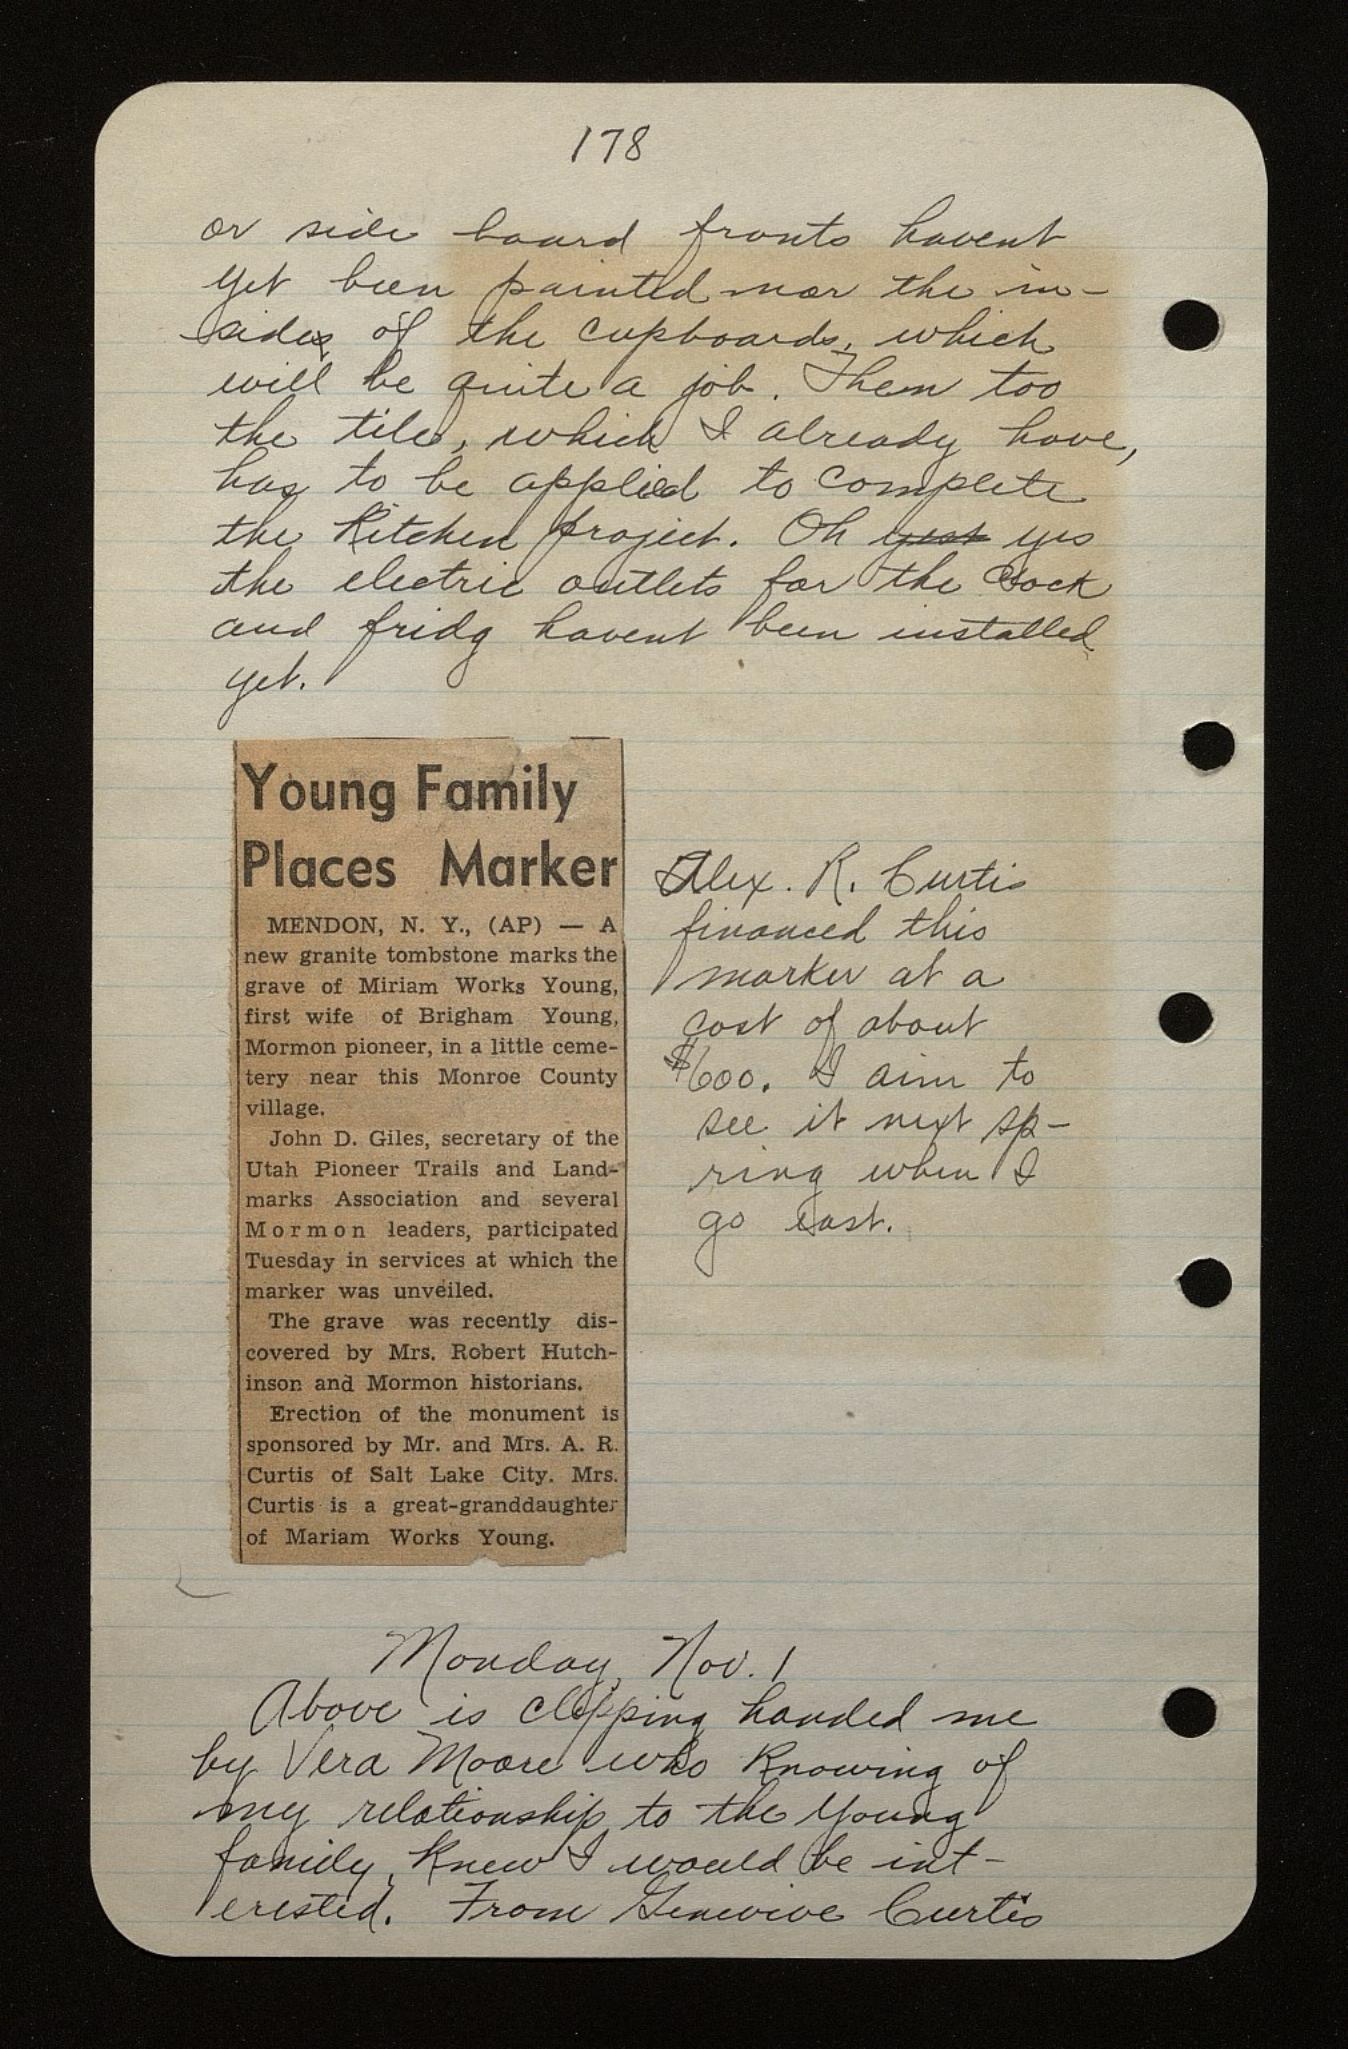 178
or side board fronts havent
yet been painted nor the in-
sides of the cupboards, which
will be quite a job. Then too
the tile, which I already have,
has to be applied to complete
the kitchen project. Oh yest yes
the electric outlets for the clock
and fridg havent been installed
yet.
Young Family
Places Marker
MENDON, N. Y., (AP) — A
new granite tombstone marks the
grave of Miriam Works Young,
first wife of Brigham Young,
Mormon pioneer, in a little ceme-
tery near this Monroe County
village.
John D. Giles, secretary of the
Utah Pioneer Trails and Land-
marks Association and several
Mormon leaders, participated
Tuesday in services at which the
marker was unveiled.
The grave was recently dis-
covered by Mrs. Robert Hutch-
inson and Mormon historians.
Erection of the monument is
sponsored by Mr. and Mrs. A. R.
Curtis of Salt Lake City. Mrs.
Curtis is a great-granddaughter
of Mariam Works Young.
Alex. R. Curtis
financed this
marker at a
cost of about
$600. I aim to
see it next sp-
ring when I
go east.
Monday, Nov. 1
Above is clipping handed me
by Vera Moore who knowing of
my relationship to the Young
family, knew I would be int-
erested. From Genevive Curtis